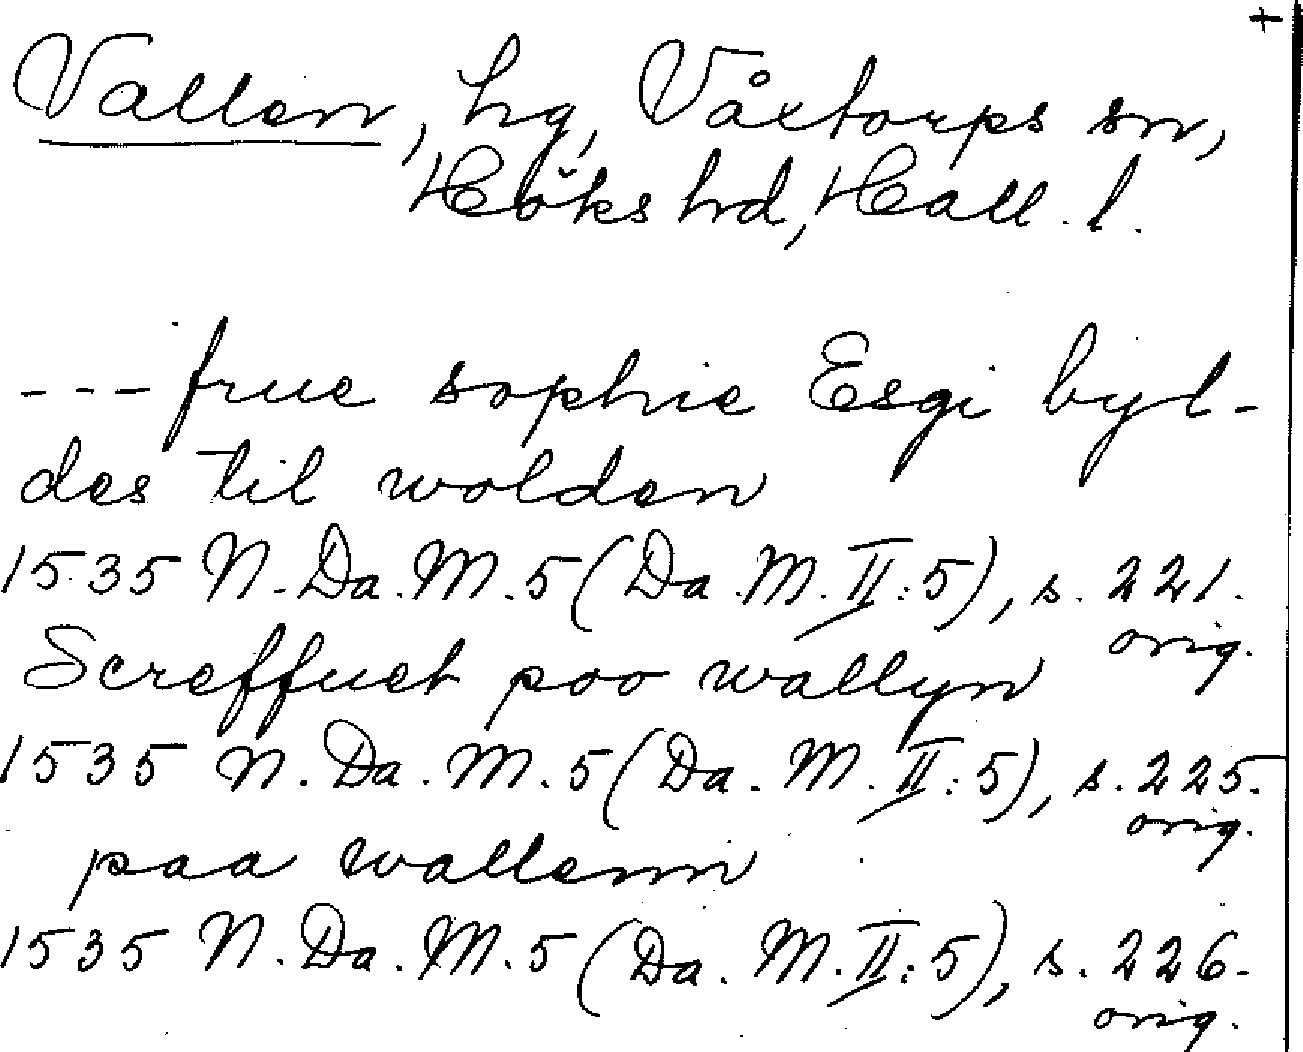 +
Vallen, hg, Våxtorps sn,
Höks hd, Hall. l.
--- frue sophie Esgi byl-
des til wolden
1535 N. Da. M. 5 (Da. M. II: 5), s. 221.
orig.
Screffuet poo wallyn
1535 N. Da. M. 5 (Da. M. II: 5), s. 225.
orig.
paa wallenn
1535 N. Da. M. 5 (Da. M. II: 5), s. 226.
orig.